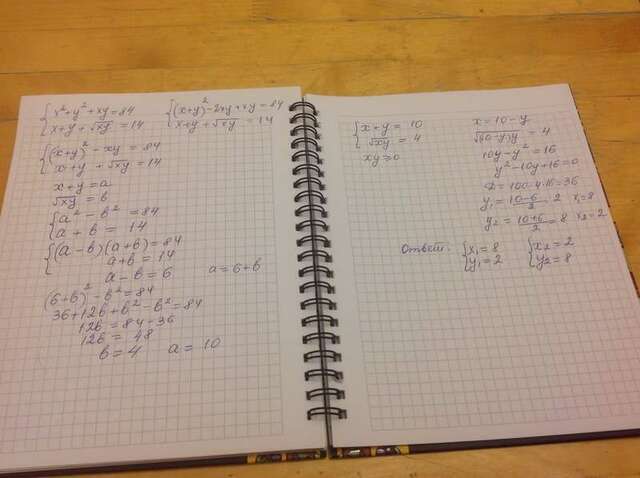 {x²+y²+xy=84   {(x+y)²-2xy+xy=84
{x+y+√xy=14   {x+y+√xy=14
{(x+y)²-xy=84
{x+y+√xy=14
x+y=a
√xy=b
{a²-b²=84
{a+b=14
{(a-b)(a+b)=84
{a+b=14
a-b=6   a=6+b
(6+b)²-b²=84
36+12b+b²-b²=84
12b=84-36
12b=48
b=4   a=10
{x+y=10   x=10-y
{√xy=4   √(10-y)y=4
xy≥0   10y-y²=16
y²-10y+16=0
D=100-4·16=36
y₁=(10-6)/2=2   x₁=8
y₂=(10+6)/2=8   x₂=2
Ответ: {x₁=8   {x₂=2
{y₁=2   {y₂=8